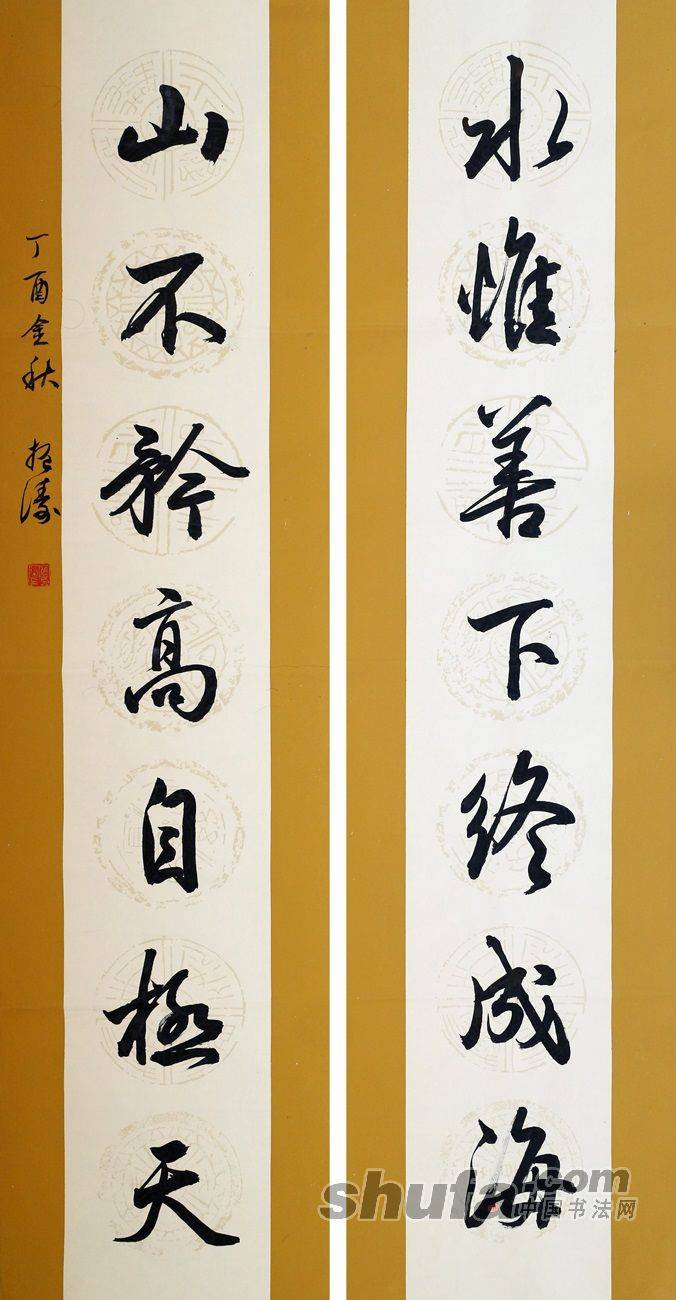 水惟善下终成海
山不矜高自極天
丁酉金秋
shufa.com
中国书法网